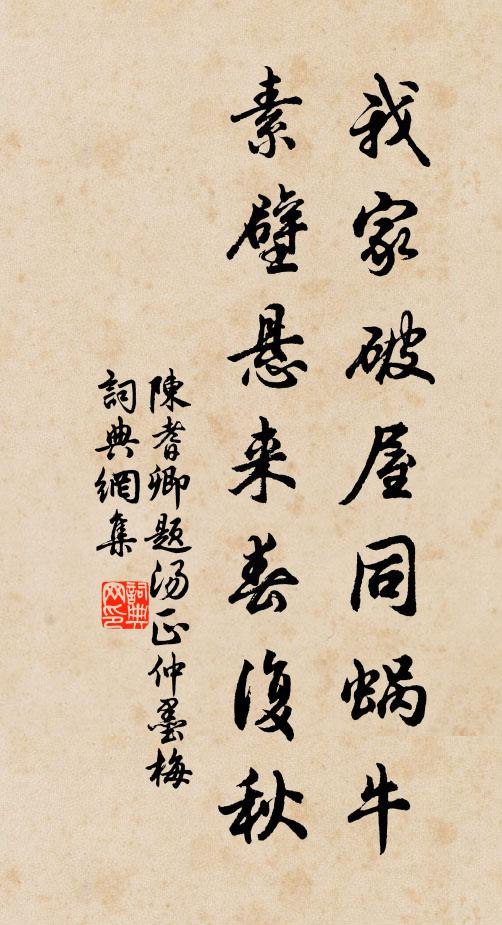 我家破屋同蜗牛
素壁悬来春復秋
陳耆卿题汤正仲墨梅
詞典網集
詞典网印